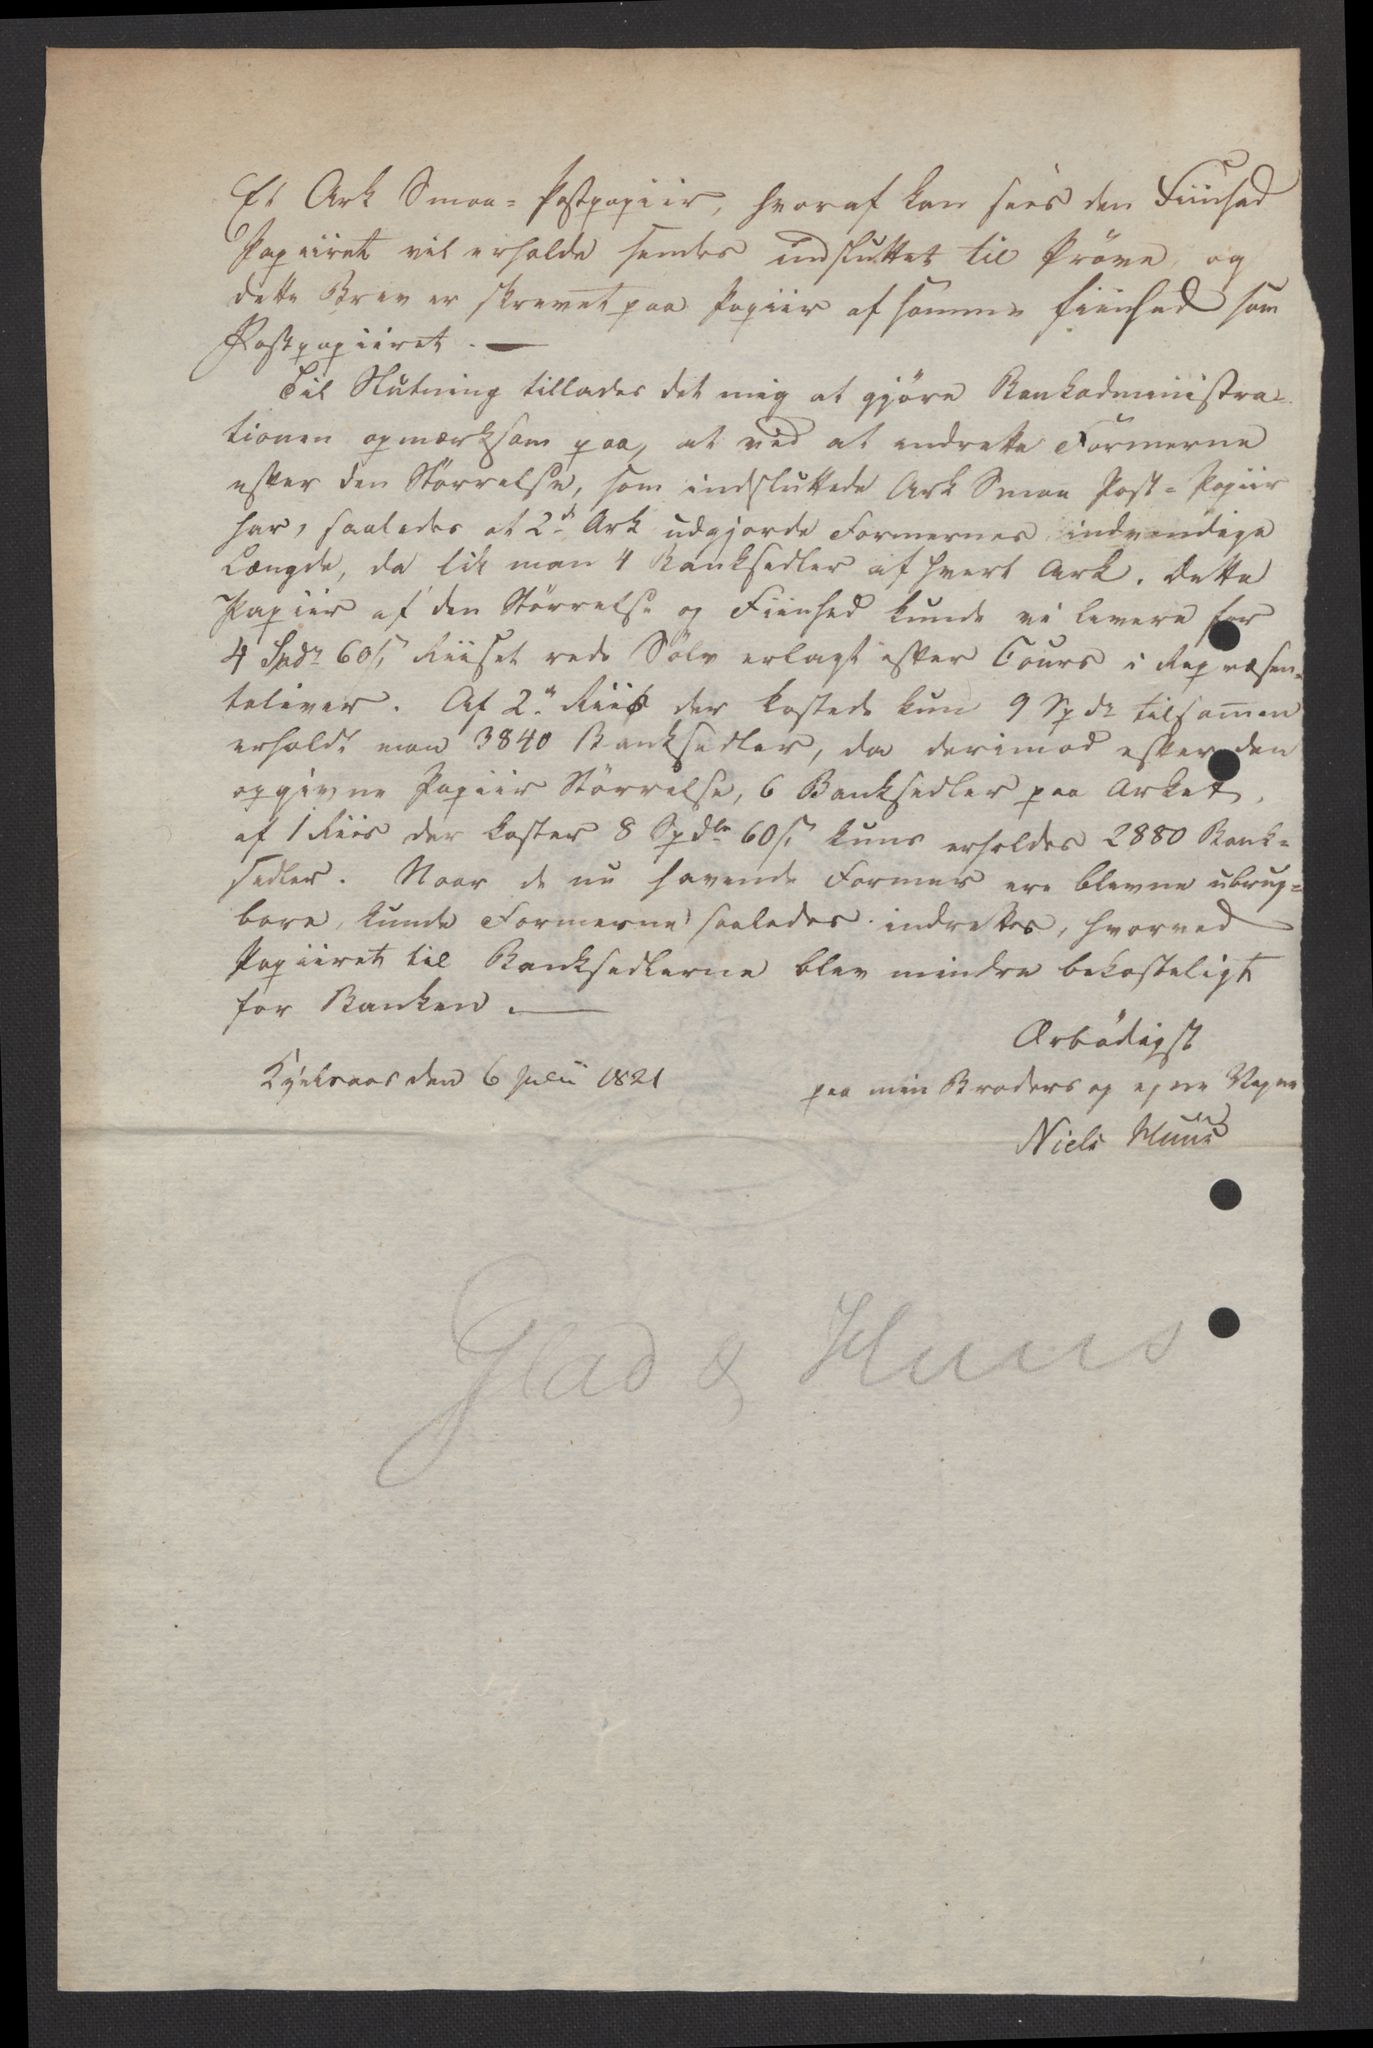 Et Ark Smaa=Postpapiir, hvoraf kan sees den Fiinhed
Papiiret vil erholde sendes indsluttet til Pröve, og
dette Brev er skrevet paa Papiir af samme fiinhed som
Postpapiiret. —
Til Slutning tillades det mig at gjöre Bankadministra=
tionen opmærksom paa, at ved at indrette Formerne
efter den Störrelse, som indsluttede Ark Smaa Post=Papiir
har, saaledes at 2de Ark udgjorde Formernes indvendige
Længde, da fik man 4 Banksedler af hvert Ark. Dette
Papiir af den Störrelse og Fiinhed kunde vi levere for
4 Spdr 60 s Riiset rede Sölv erlagt efter Cours i Repræsen=
tativer. Af 2de Riis der kostede kun 9 Spdr tilsamen
erholdt man 3840 Banksedler, da derimod efter den
opgivne Papiir Störrelse, 6 Banksedler paa Arket,
af 1 Riis der koster 8 Spdlr 60 s kuns erholdes 2880 Bank=
sedler. Naar de nu havende Former ere blevne ubrug=
bare, kunde Formerne saaledes indrettes, hvorved
Papiiret til Banksedlerne blev mindre bekosteligt
for Banken. —
Ærbödigst
Kjelsaas den 6 Julii 1821
paa min Broders og egne Vegne
Niels Huus
Glad & Huus